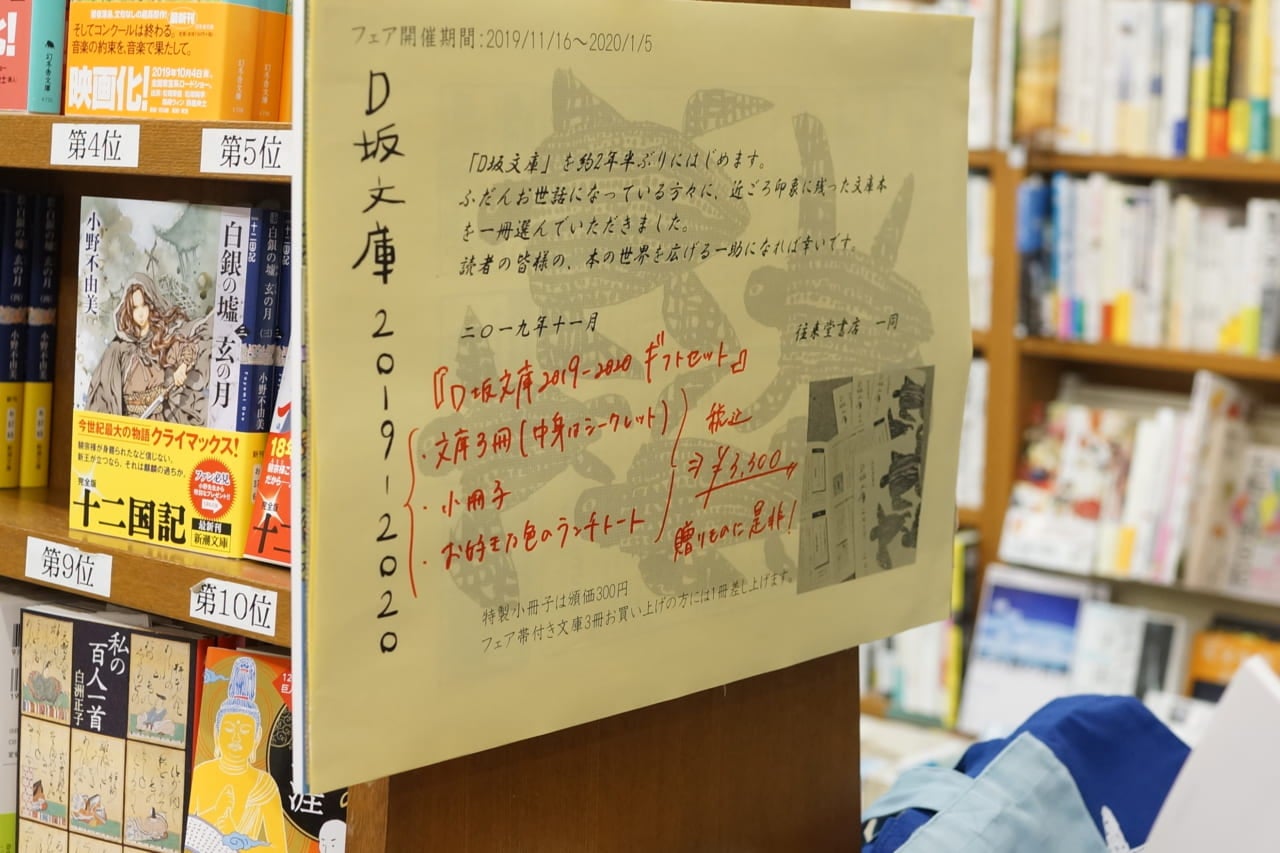 最新刊
そしてコンクールは終わる。
音楽の約束を、音楽で果たして。
映画化!
2019年10月4日㊎、
全国東宝系ロードショー。
第4位
第5位
小野不由美
白銀の墟
玄の月
三
今世紀最大の物語
クライマックス!
新王が立つなら、それは麒麟の過ちか。
ファン必見
完全版
十二国記
最新刊
新潮文庫
十二国記
白銀の墟 玄の月
小野不由美
18年
第9位
第10位
私の
百人一首
白洲正子
フェア開催期間:2019/11/16~2020/1/5
D坂文庫2019-2020
「D坂文庫」を約2年半ぶりにはじめます。
ふだんお世話になっている方々に、近ごろ印象に残った文庫本
を一冊選んでいただきました。
読者の皆様の、本の世界を広げる一助になれば幸いです。
二〇一九年十一月
往来堂書店 一同
『D坂文庫2019-2020 ギフトセット』
・文庫3冊(中身はシークレット)
・小冊子
・お好きな色のランチトート
税込
⇒¥3,300
贈りものに是非!
特製小冊子は頒価300円
フェア帯付き文庫3冊お買い上げの方には1冊差し上げます。